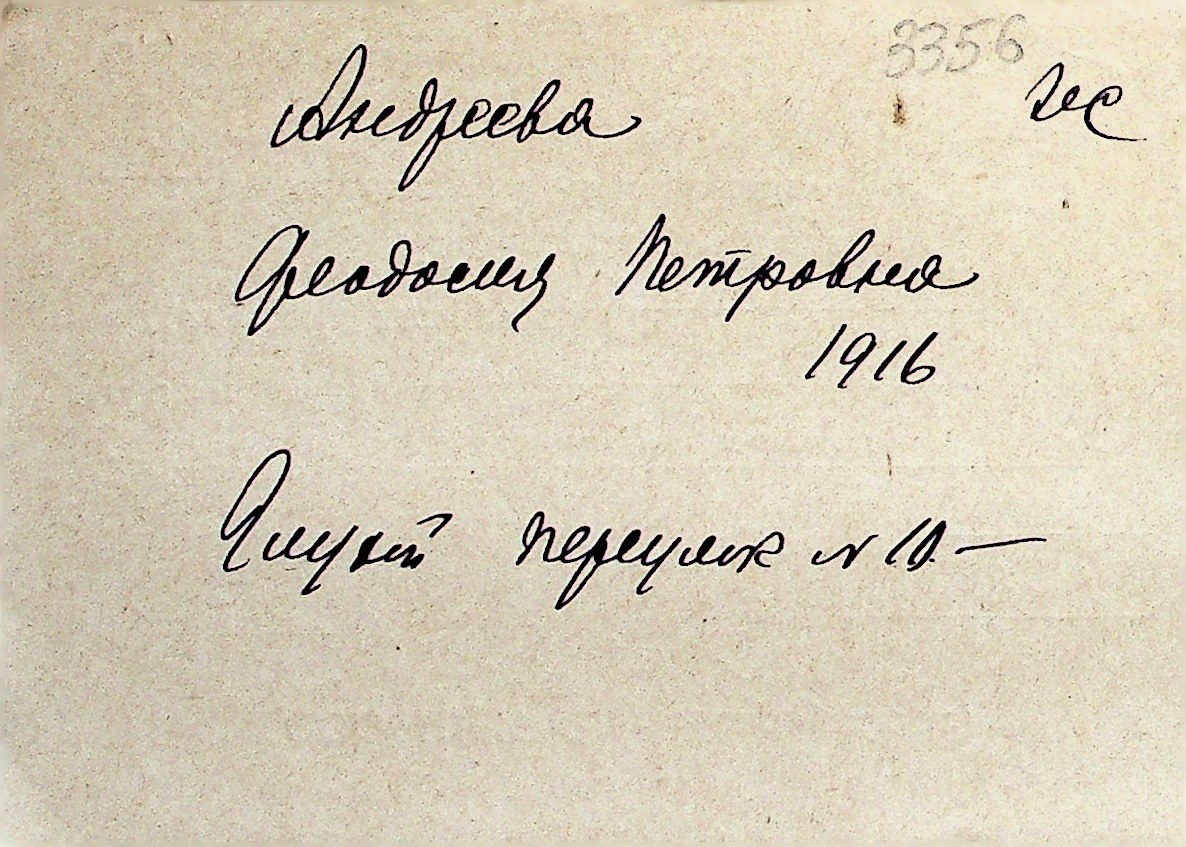 3356
Андреева ис
Феодосия Петровна
1916
Глухой переулок N 10 —